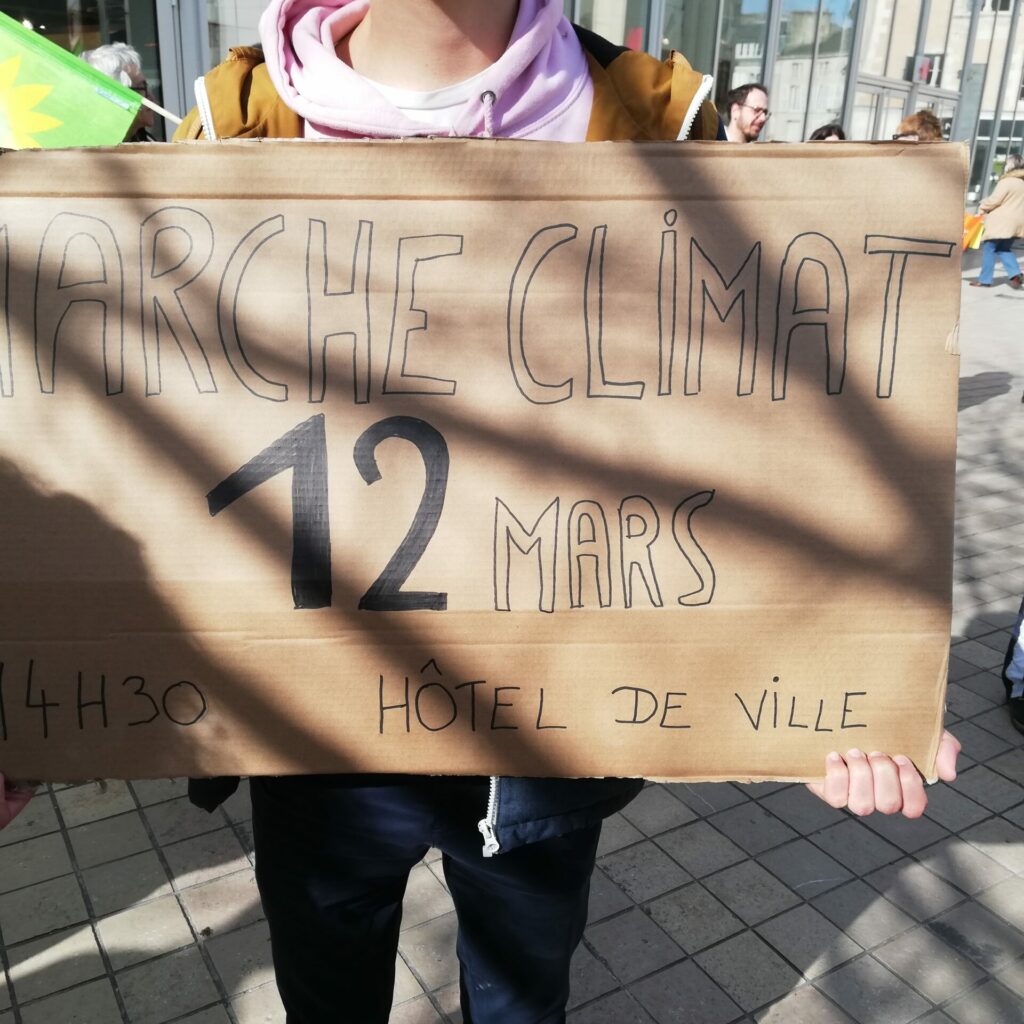 MARCHE CLIMAT
12 MARS
14H30 HÔTEL DE VILLE